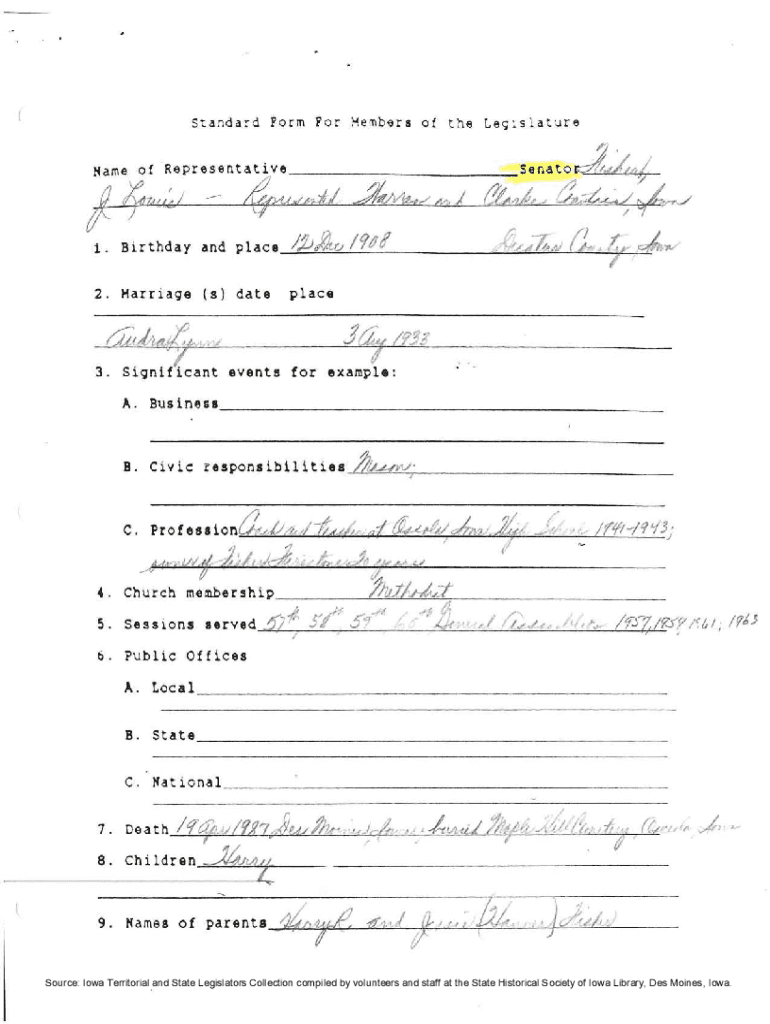 Standard Form For Members of the Legislature
Name of Representative Senator Fisher,
J Louis — Represented Warren and Clarke Counties, Iowa
1. Birthday and place 12 Dec 1908 Decatur County, Iowa
2. Marriage (s) date place
Audra Lynne 3 Aug 1933
3. Significant events for example:
A. Business
B. Civic responsibilities Mason;
C. Profession Coach and teacher at Osceola, Iowa High School 1941-1943;
owner of Fisher Firestone 20 years
4. Church membership Methodist
5. Sessions served 57th, 58th, 59th, 60th General Assemblies 1957, 1959, 1961; 1963
6. Public Offices
A. Local
B. State
C. National
7. Death 19 Apr 1987 Des Moines, Iowa; buried Maple Hill Cemetery, Osceola, Iowa
8. Children Harry
9. Names of parents Harry R. and Jessie () Fisher
Source: Iowa Territorial and State Legislators Collection compiled by volunteers and staff at the State Historical Society of Iowa Library, Des Moines, Iowa.